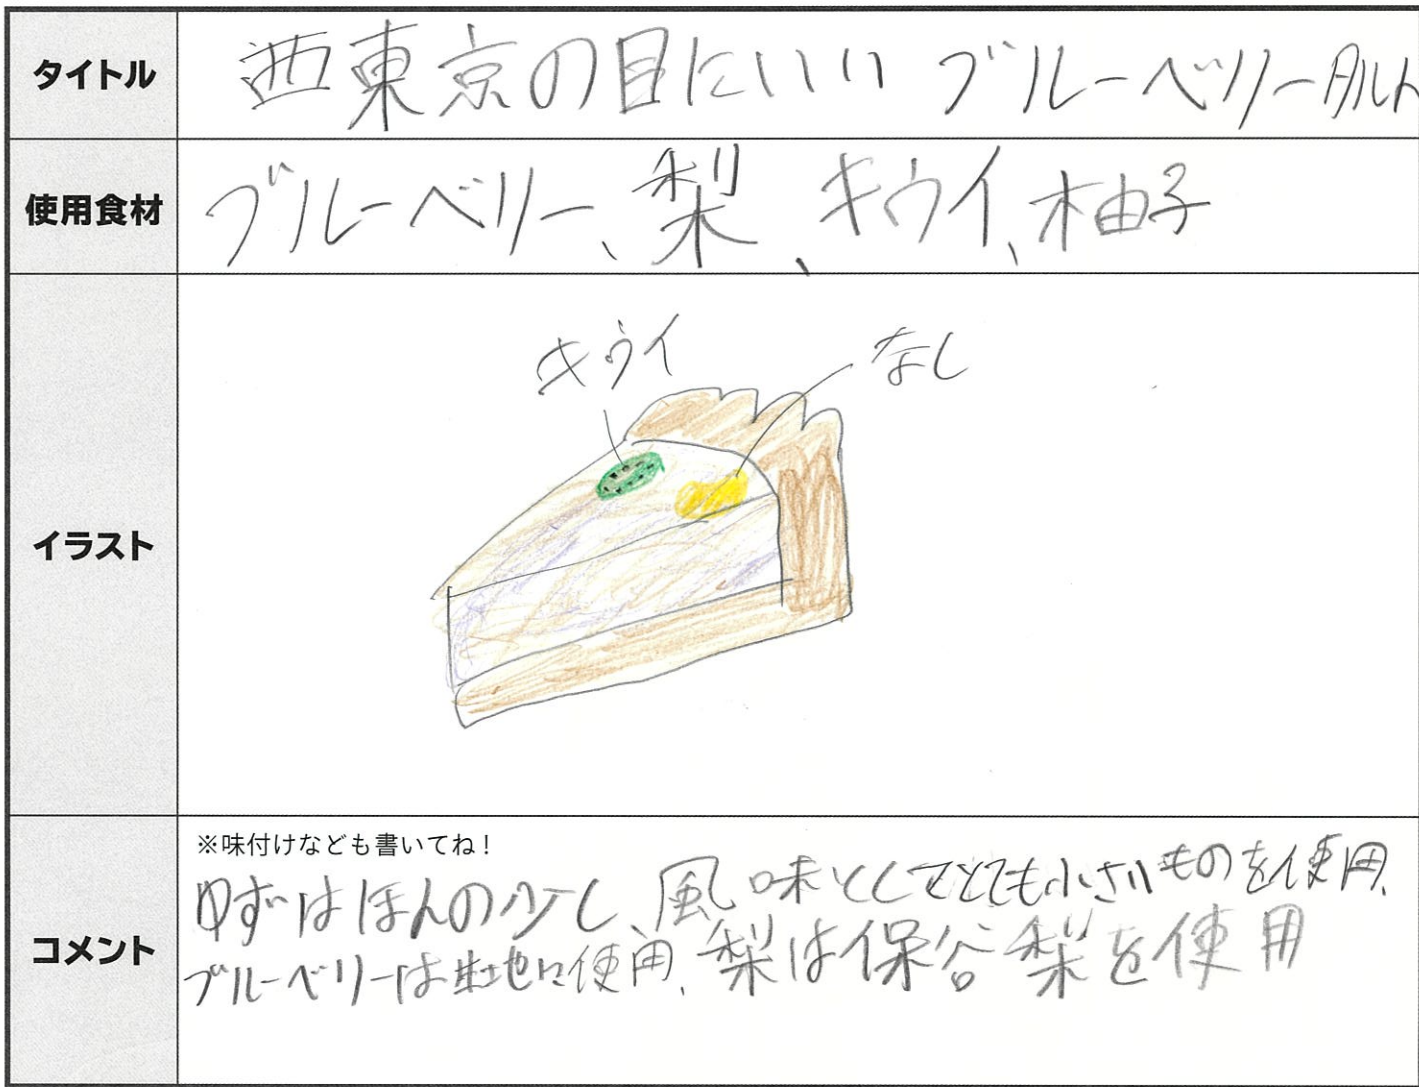 タイトル
西東京の目にいい ブルーベリータルト
使用食材
ブルーベリー、梨、キウイ、柚子
イラスト
キウイ
なし
コメント
※味付けなども書いてね!
ゆずはほんの少し、風味としてとても小さいものを使用、
ブルーベリーは生地に使用、梨は保谷梨を使用